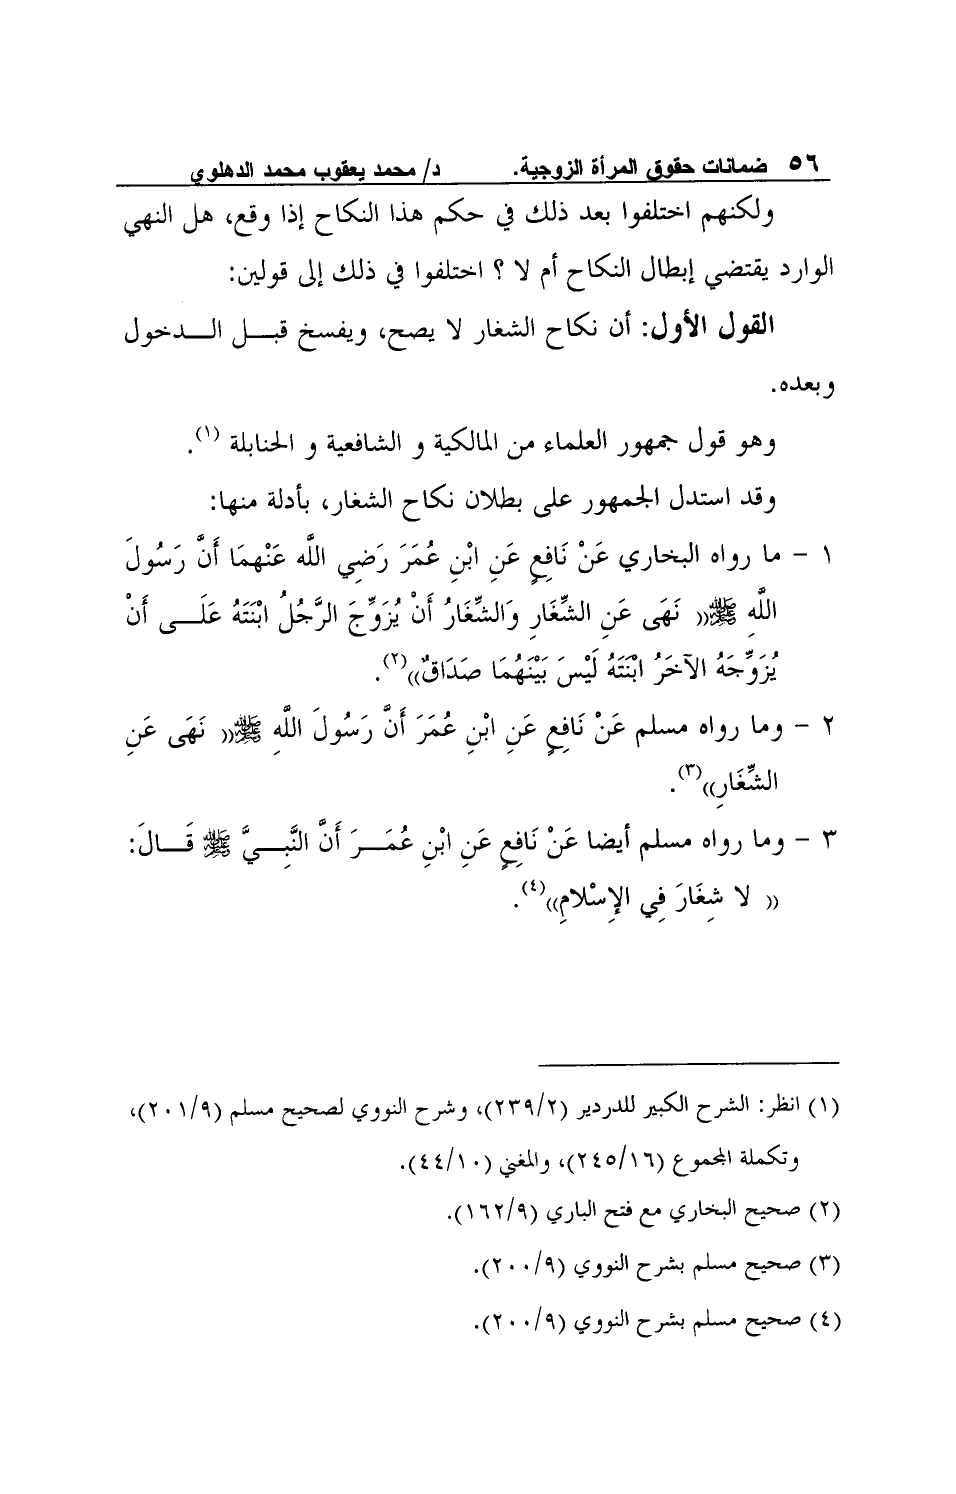 ٥٦ ضمانات حقوق المرأة الزوجية. د/ محمد يعقوب محمد الدهلوي
ولكنهم اختلفوا بعد ذلك في حكم هذا النكاح إذا وقع، هل النهي
الوارد يقتضي إبطال النكاح أم لا ؟ اختلفوا في ذلك إلى قولين:
القول الأول: أن نكاح الشغار لا يصح، ويفسخ قبــل الــدخول
وبعده.
وهو قول جمهور العلماء من المالكية و الشافعية و الحنابلة (١).
وقد استدل الجمهور على بطلان نكاح الشغار، بأدلة منها:
١ - ما رواه البخاري عَنْ نَافِعٍ عَنِ ابْنِ عُمَرَ رَضِي اللَّه عَنْهمَا أَنَّ رَسُولَ
اللَّهِ ﷺ(( نَهَى عَنِ الشِّغَارِ وَالشِّغَارُ أَنْ يُزَوِّجَ الرَّجُلُ ابْنَتَهُ عَلَــى أَنْ
يُزَوِّجَهُ الآخَرُ ابْنَتَهُ لَيْسَ بَيْنَهُمَا صَدَاقٌ))(٢).
٢ - وما رواه مسلم عَنْ نَافِعٍ عَنِ ابْنِ عُمَرَ أَنَّ رَسُولَ اللَّهِ ﷺ(( نَهَى عَنِ
الشِّغَارِ))(٣).
٣ - وما رواه مسلم أيضا عَنْ نَافِعٍ عَنِ ابْنِ عُمَــرَ أَنَّ النَّبِــيَّ ﷺ قَــالَ:
(( لا شِغَارَ فِي الإِسْلامِ))(٤).
(١) انظر: الشرح الكبير للدردير (٢٣٩/٢)، وشرح النووي لصحيح مسلم (٢٠١/٩)،
وتكملة المجموع (٢٤٥/١٦)، والمغني (٤٤/١٠).
(٢) صحيح البخاري مع فتح الباري (١٦٢/٩).
(٣) صحيح مسلم بشرح النووي (٢٠٠/٩).
(٤) صحيح مسلم بشرح النووي (٢٠٠/٩).